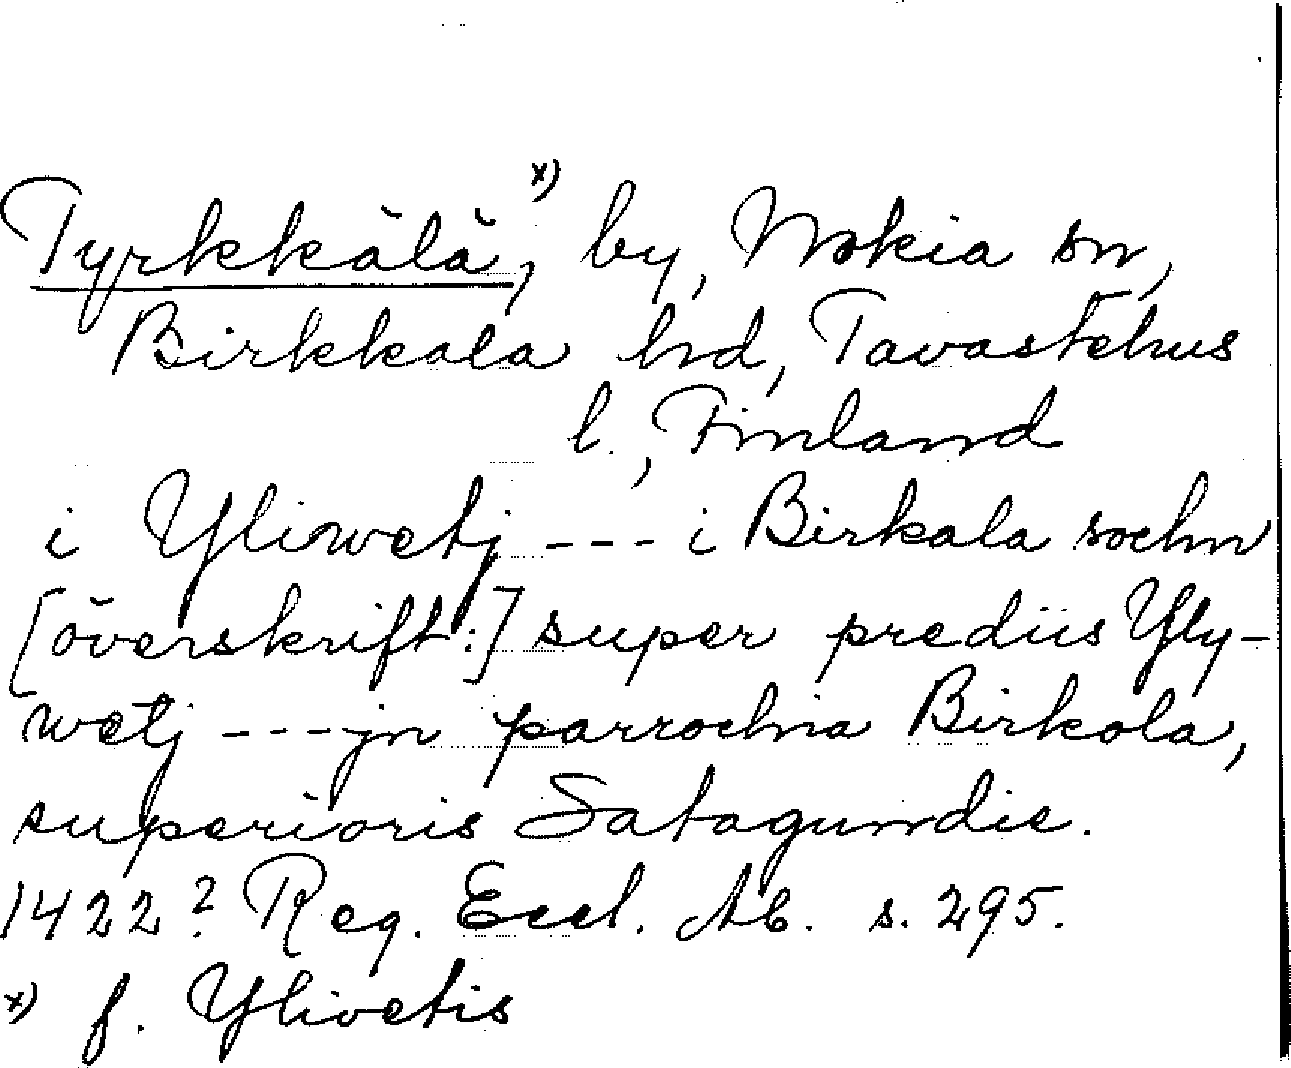 Tyrkkälä,*) by, Nokia sn,
Birkkala hd, Tavastehus
l., Finland
i Yliwetj --- i Birkala sochn
[överskrift:] super prediis Yly-
wetj --- jn parrochia Birkala,
superioris Satagundie.
1422? Reg. Eccl. Ab. s. 295.
*) f. Ylivetis